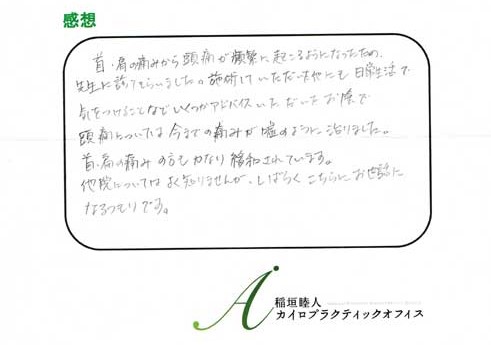 感想
首・肩の痛みから頭痛が頻繁に起こるようになったため、
先生に診てもらいました。施術していただいた他にも日常生活で
気をつけることなどいくつかアドバイスいただいたお陰で
頭痛については今までの痛みが嘘のように治りました。
首・肩の痛みの方もかなり緩和されています。
他院についてはよく知りませんが、しばらくこちらにお世話に
なるつもりです。
稲垣睦人
カイロプラクティックオフィス